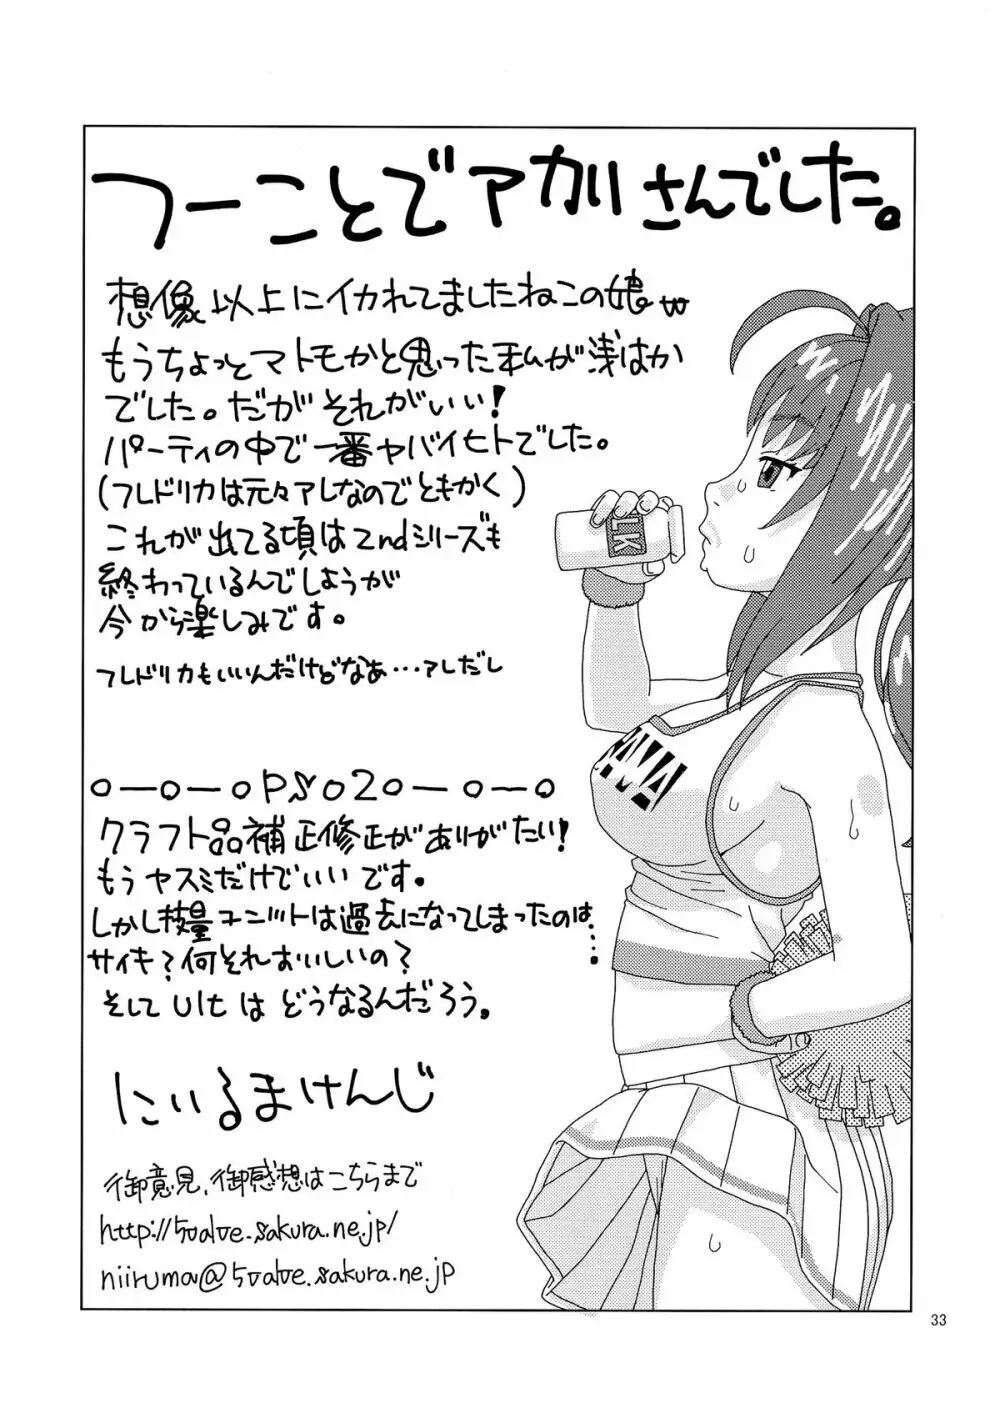 つーことでアカリさんでした。
想像以上にイカれてましたねこの娘w
もうちょっとマトモかと思った私が浅はか
でした。だがそれがいい！
パーティの中で一番ヤバイヒトでした。
(フレドリカは元々アレなのでともかく)
これが出てる頃は2ndシリーズも
終わっているんでしょうが
今から楽しみです。
フレドリカもいいんだけどなぁ…アレだし
LK
o—o—oPSO2o—o—o
クラフト品補正修正がありがたい！
もうヤスミだけでいいです。
しかし技量ユニットは過去になってしまったのは…。
サイキ？何それおいしいの？
そしてUltはどうなるんだろう。
にいるまけんじ
御意見、御感想はこちらまで
http://5valve.sakura.ne.jp/
niiruma@5valve.sakura.ne.jp
33